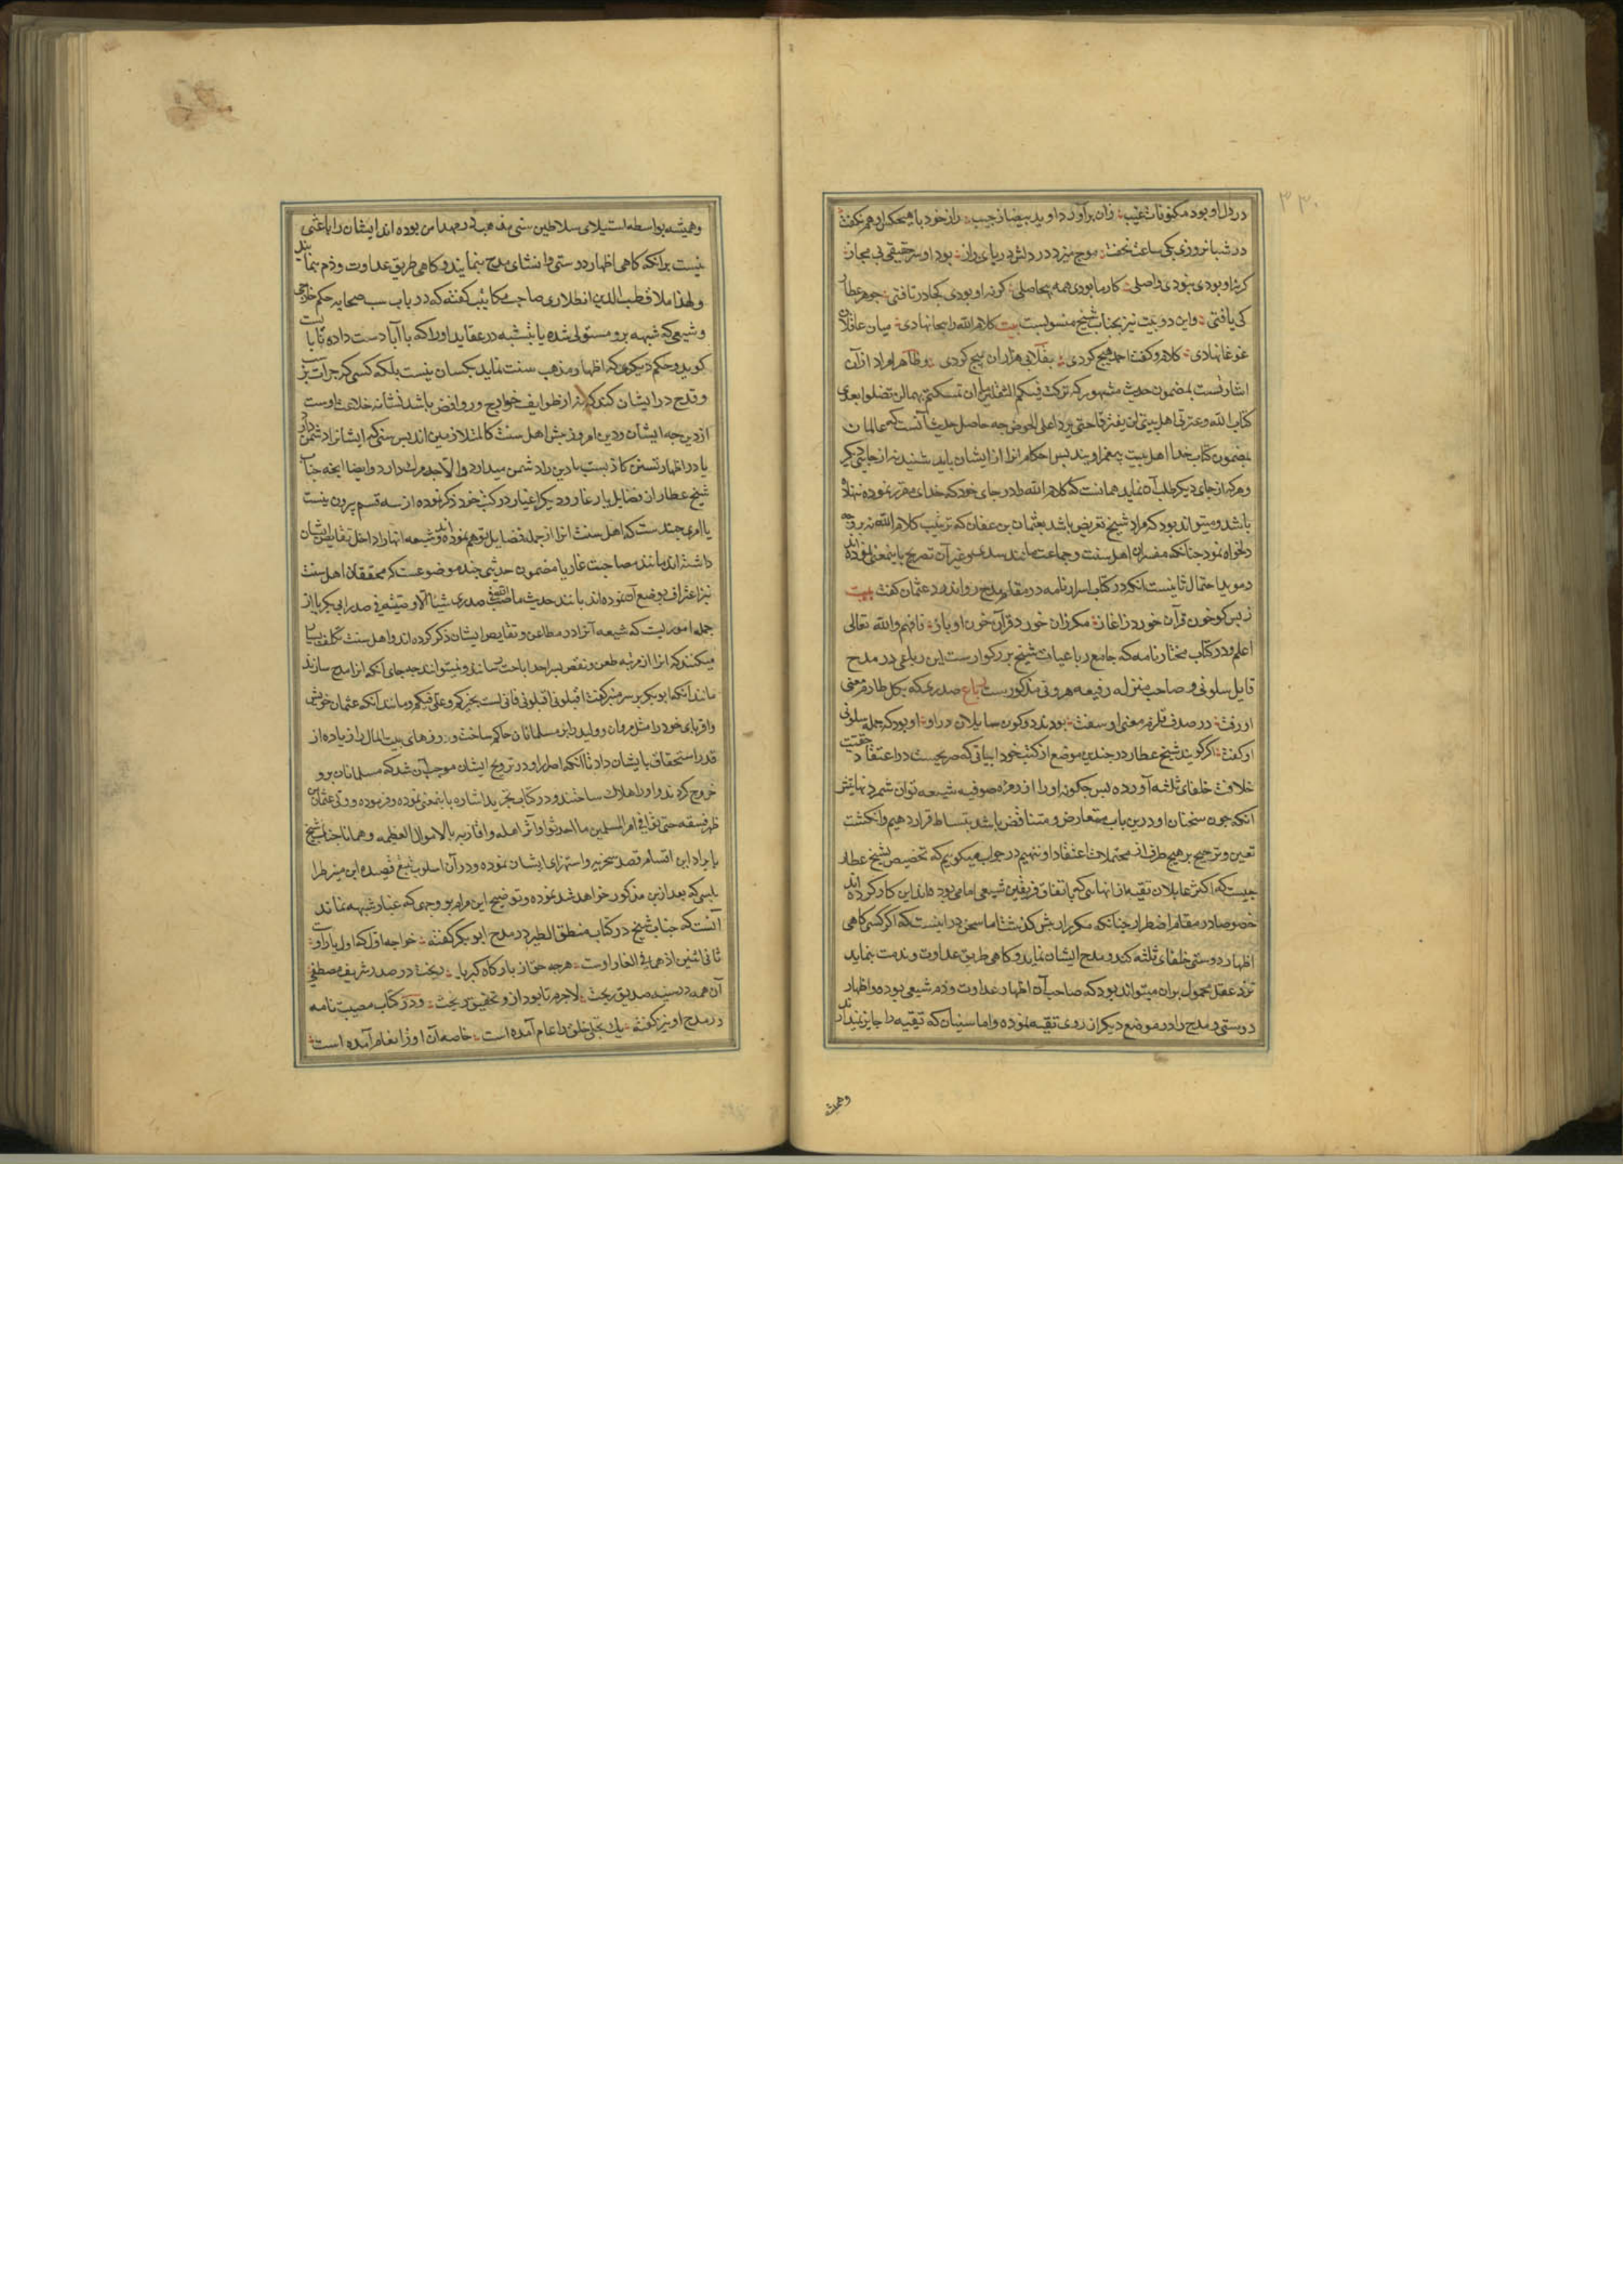 ۳۳۰
در دل او بود مکنونات غیب زان برآورد او ید بیضا ز جیب راز خود با هیچکس او هم نکفت
در شبانروزی یکی ساعت نخفت موج میزد در دلش دریای راز بود او سر حقیقی نی مجاز
کرنه او بودی نبودی واصلی کار ما بودی همه بیحاصلی کرنه او بودی کجا دریافتی جوهر عطار
کی یافتی واین دو بیت نیز بجناب شیخ منسوبست بیت کلام الله را بیجا نهادی میان عاقلان
غوغا نهادی کلام و کفت احمد هیچ کردی بقلابی هزاران پیچ کردی وظاهرا مراد از آن
اشارتست بمضمون حدیث مشهور که ترکت فیکم الثقلین ان تمسکتم بهما لن تضلوا بعدی
کتاب الله وعترتی اهل بیتی لن یفترقا حتی یردا علی الحوض چه حاصل حدیث آنست که عالمان
بمضمون کتاب خدا اهل بیت پیغمبر اویند پس احکام انرا از ایشان باید شنید نه از جای دیکر
وهرکه از جای دیکر طلب آن نماید همانست که کلام الله را در جای خود که خدای مقرر نموده ننهاده
باشد ومیتواند بود که مراد شیخ تعریض باشد بعثمان بن عفان که ترتیب کلام الله نه بر وجه
دلخواه نمود چنانکه مفسران اهل سنت وجماعت مانند سدی وغیر آن تصریح باینمعنی نموده اند
وموید احتمال ثانیست آنکه در کتاب اسرارنامه در مقام مدح رواندود عثمان کفت بیت
ز بس کو خون قرآن خورد ز اغاز مکر زان خورد قرآن خون او باز فافهم والله تعالی
اعلم ودر کتاب مختارنامه که جامع رباعیات شیخ بزرکوار ست این رباعی در مدح
قایل سلونی وصاحب منزله رفیعه هرونی مذکورست رباعی صدری که بکل طارم معنی
او رفت در صدف قلزم معنی او سفت بودند دو کون سایلان در او او بود که جمله سلونی
او کفت اکر کویند شیخ عطار در چندین موضع از کتب خود ابیاتی که صریحست در اعتقاد حقیت
خلافت خلفای ثلثه آورده پس چکونه او را از زمره صوفیه شیعه توان شمرد نهایتش
آنکه چون سخنان او درین باب متعارض ومتناقض باشد بتساقط قرار دهیم وانکشت
تعین وترجیح بر هیچ طرف از محتملات اعتقاد او ننهیم در جواب میکوییم که تخصیص شیخ عطار
چیست که اکثر قایلان تقیه از انهایی که باتفاق فریقین شیعی امامی بوده اند این کار کرده اند
خصوصا در مقام اضطرار چنانکه مکرر ارش کذشت اما سخن در اینست که اکر کسی کاهی
اظهار دوستی خلفای ثلثه کند ومدح ایشان نماید وکاهی طریق عداوت ومذمت نماید
نزد عقل محمول بران میتواند بود که صاحب آن اظهار عداوت وذم شیعی بوده واظهار
دوستی ومدح را در موضع دیکر از روی تقیه نموده واما سنیان که تقیه را جایز نمیدارند
وهمیشه
وهمیشه بواسطه استیلای سلاطین سنی مذهب در مهد امن بوده اند ایشان را باعثی
نیست برانکه کاهی اظهار دوستی وانشای مدح بنمایند وکاهی طریق عداوت وذم پیمایند
ولهذا ملا قطب الدین انطاری صاحب مکاتیب کفته که در باب سب صحابه حکم خارجی
وشیعی که شبهه برو مستولی شده یا بشبه در عقاید او را که با آبا دست داده تا با
کوید وحکم دیکری که اظهار مذهب سنت نماید یکسان نیست بلکه کسی که جرات بر سب
وقدح در ایشان کند که نه از طوایف خوارج وروافض باشد نشانه خلاعت اوست
از دین چه ایشان ودین امروز پیش اهل سنت کالمتلازمین اند پس سنی که ایشانرا دشمن دارد
یا در اظهار تسنن کاذبست یا دین را دشمن میدارد والا جد مرک دارد وایضا انچه جناب
شیخ عطار از فضایل یار غار ودیکر اغیار در کتب خود ذکر نموده از سه قسم بیرون نیست
یا امری چند ست که اهل سنت انرا از جمله فضایل توهم نموده اند وشیعه انها را داخل نقایص ایشان
داشته اند مانند مصاحبت غار یا مضمون حدیثی چند موضوعست که محققان اهل سنت
نیز اعتراف بوضع آن نموده اند مانند حدیث ما صب الله فی صدری شیئا الا وصببته فی صدر ابی بکر یا از
جمله اموریست که شیعه آنرا در مطاعن ونقایص ایشان ذکر کرده اند واهل سنت تکلف بسیار
میکنند که انرا از مرتبه طعن ونقص بسر حد اباحت رسانند ونمیتوانند چه جای آنکه انرا مدح سازند
مانند آنکه ابوبکر بر سر منبر کفت اقیلونی اقیلونی فانی لست بخیرکم وعلی فیکم ومانند آنکه عثمان خویش
واقربای خود را مثل مروان وولید را بر مسلمانان حاکم ساخت وزرهای بیت المال را زیاده از
قدر استحقاق بایشان داد تا آنکه اصرار او در ترویج ایشان موجب آن شد که مسلمانان برو
خروج کردند واو را هلاک ساختند ودر کتاب تجرید اشاره باینمعنی نموده وفرموده وولی عثمان من
ظهر فسقه حتی احدثوا فی امر المسلمین ما احدثوا واثر اهله واقاربه بالاموال العظیمه وهمانا جناب شیخ
بایراد این اقسام قصد سخریه واستهزای ایشان نموده ودر آن اسلوب تبع قصیده ابن منیر طرا
بلسی که بعد ازین مذکور خواهد شد نموده وتوضیح این مرام بر وجهی که غبار شبهه نماند
آنست که جناب شیخ در کتاب منطق الطیر در مدح ابوبکر کفته خواجه اول که اول یار اوست
ثانی اثنین اذ هما فی الغار اوست هرچه حق از بارکاه کبریا ریخت در صدر شریف مصطفی
آن همه در سینه صدیق ریخت لاجرم تا بود ازو تحقیق ریخت ودر کتاب مصیبت نامه
در مدح او نیز کفته یک تجلی خلق را عام آمده است خاصه آن او ز انعام آمده است